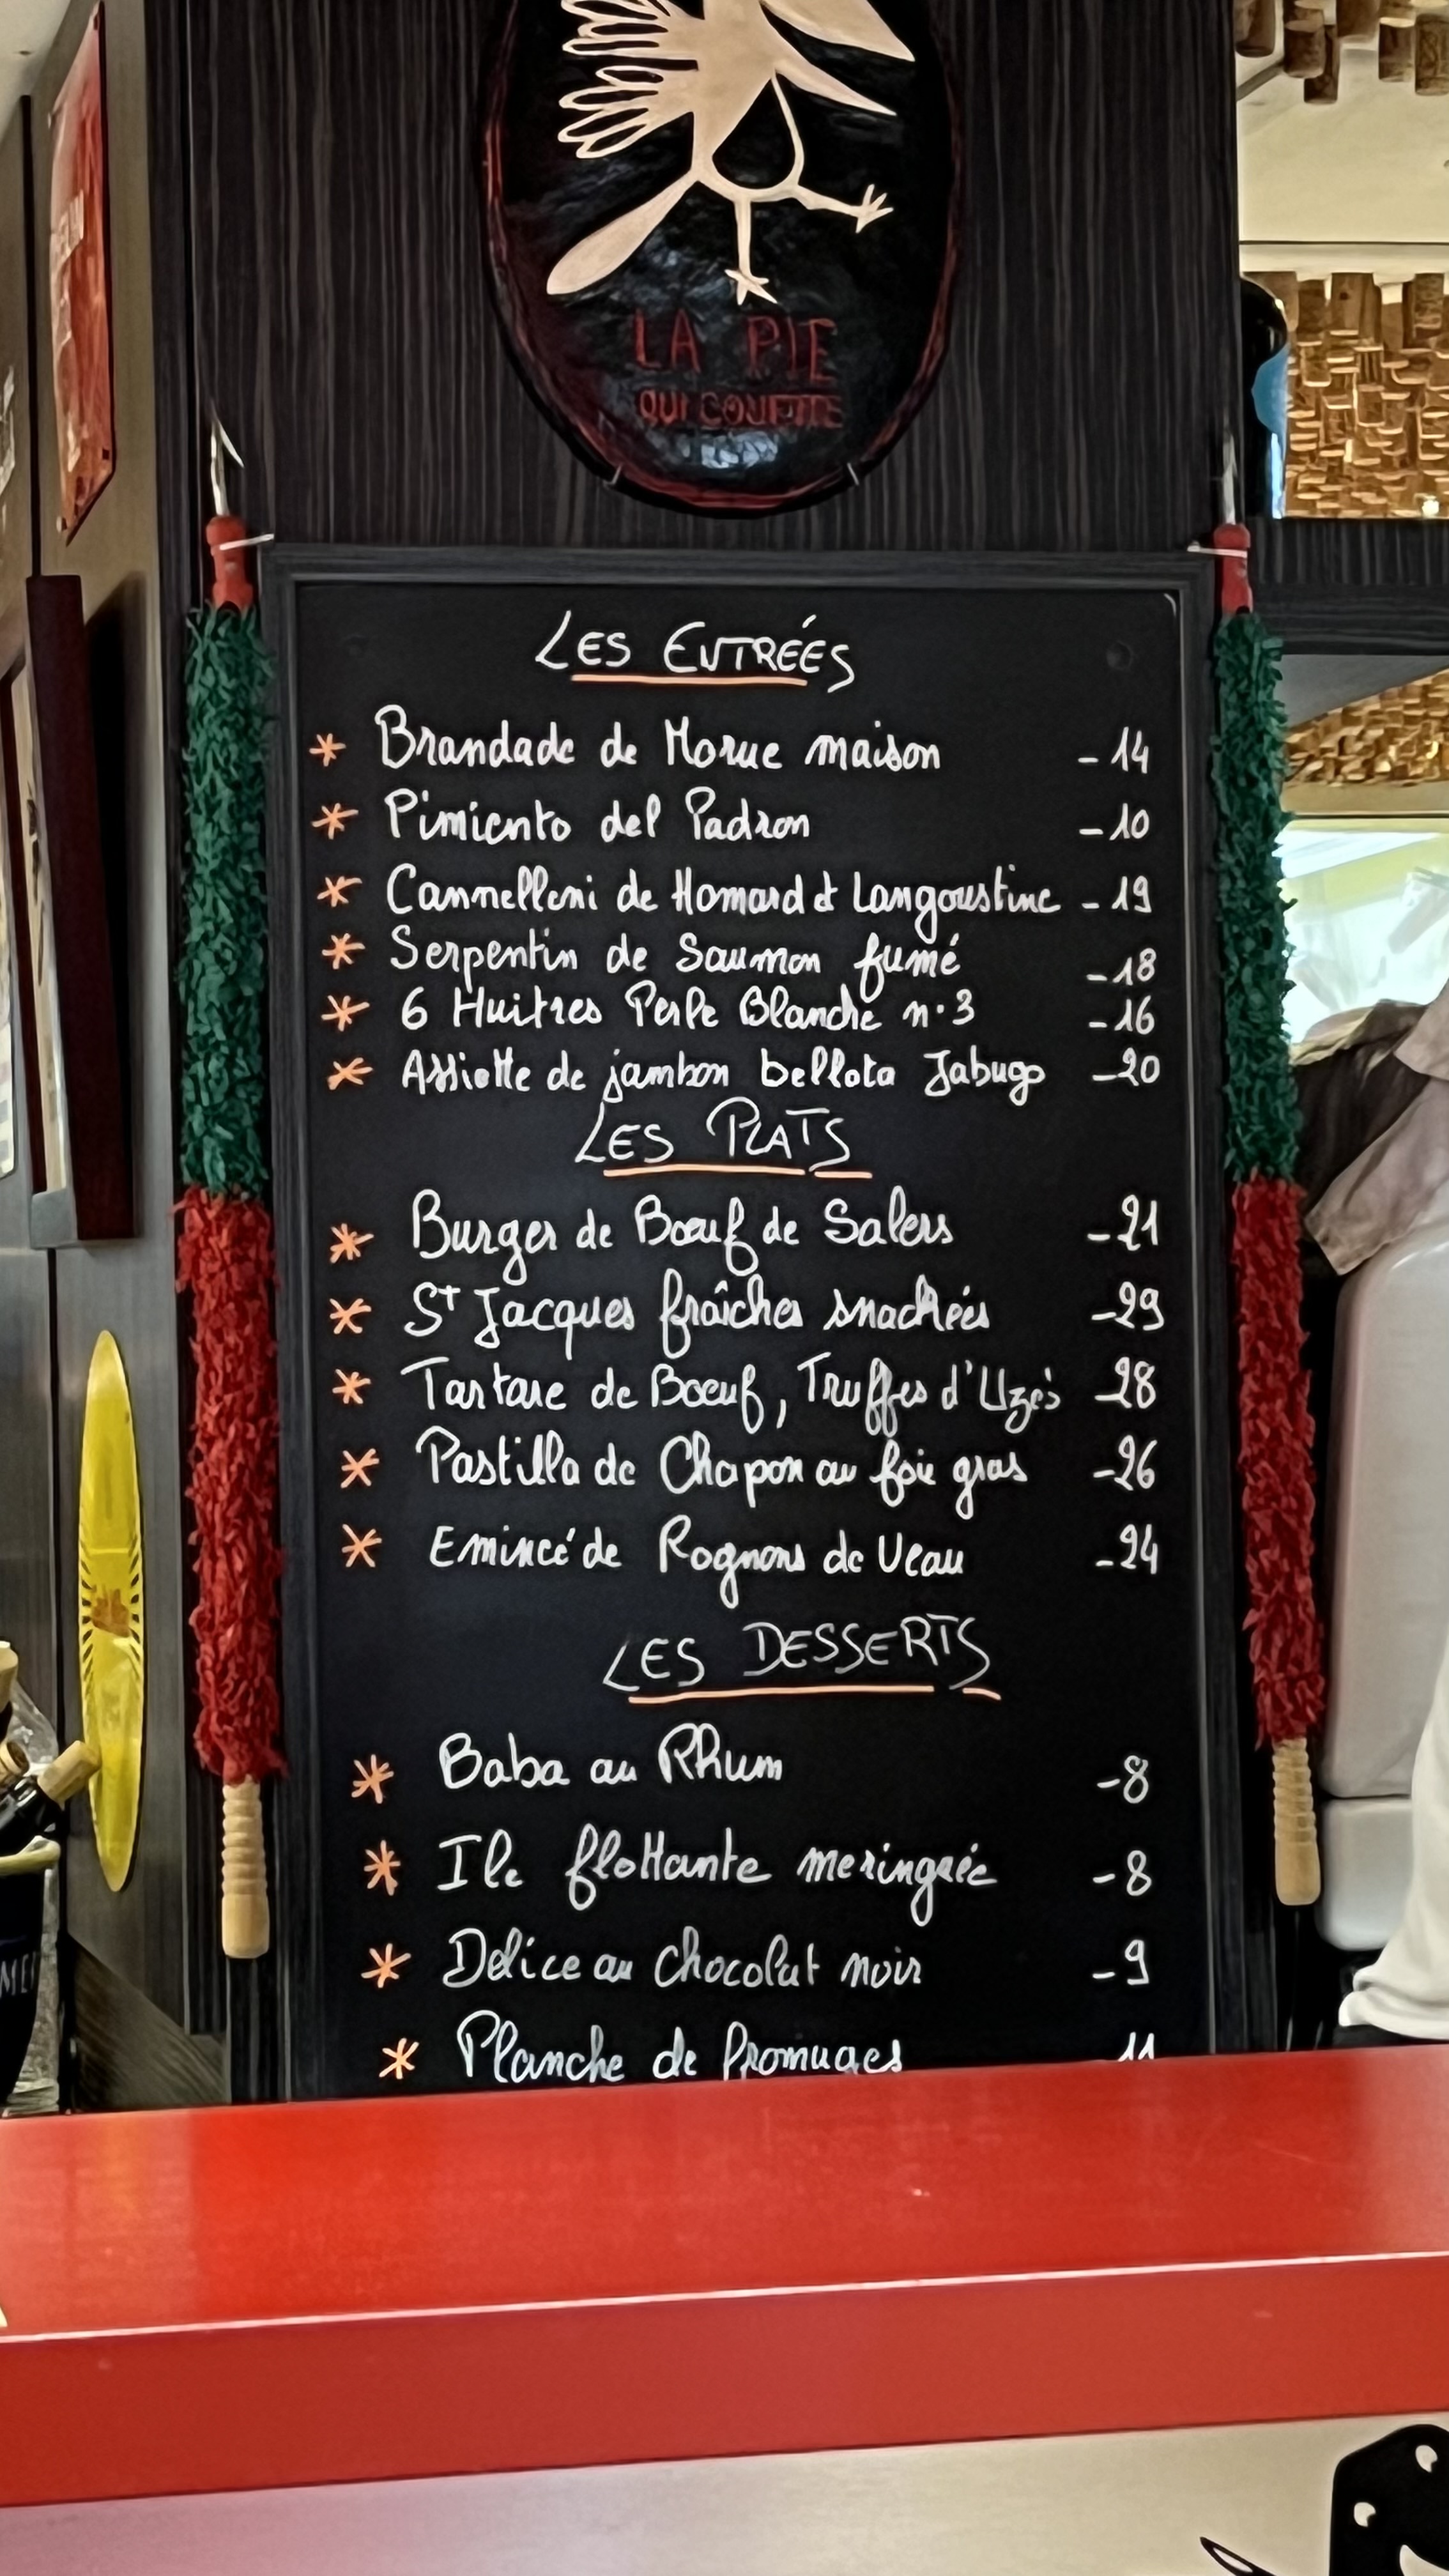 LA PIE
QUI COUETTE
LES ENTRÉES
* Brandade de Morue maison - 14
* Pimiento del Padron - 10
* Cannelloni de Homard & Langoustine - 19
* Serpentin de Saumon fumé - 18
* 6 Huitres Perle Blanche n•3 - 16
* Assiette de jambon bellota Jabugo - 20
LES PLATS
* Burger de Bœuf de Salers - 21
* St Jacques fraîches snackées - 29
* Tartare de Boeuf, Truffes d'Uzès - 28
* Pastilla de Chapon au foie gras - 26
* Emincé de Rognons de Veau - 24
LES DESSERTS
* Baba au Rhum - 8
* Ile flottante meringuée - 8
* Délice au chocolat noir - 9
* Planche de fromages 11